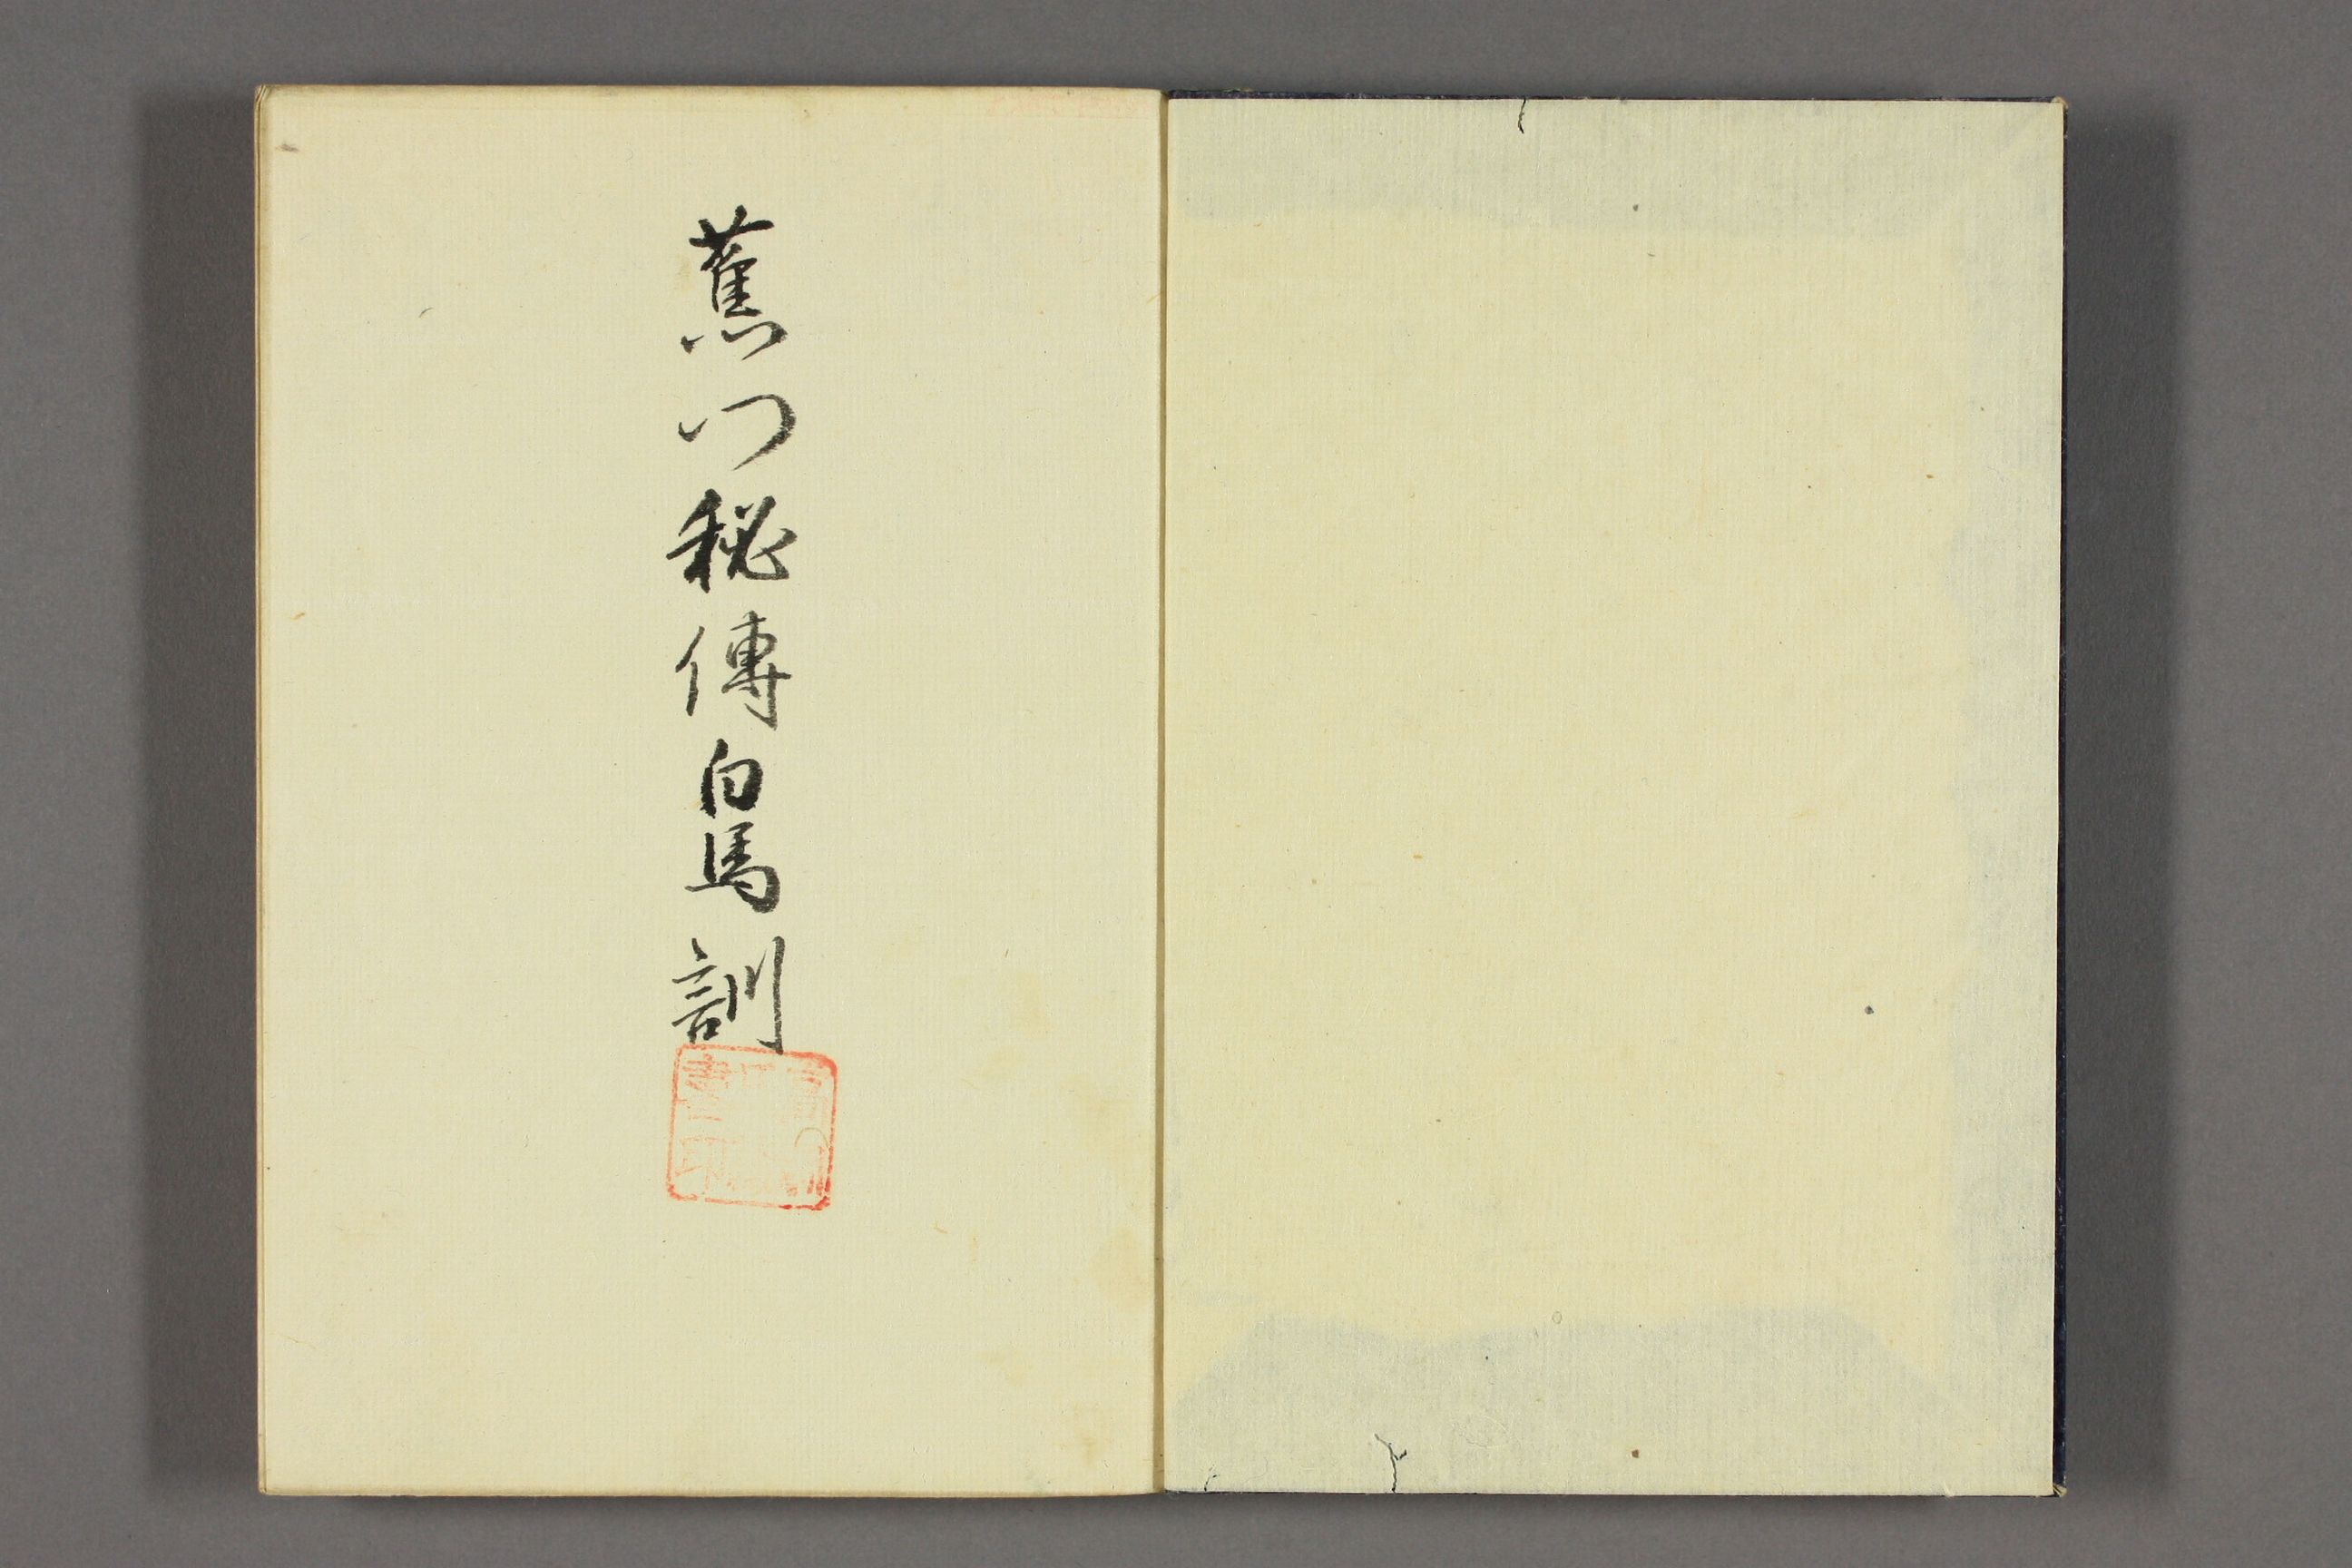 蕉門秘傳白馬訓